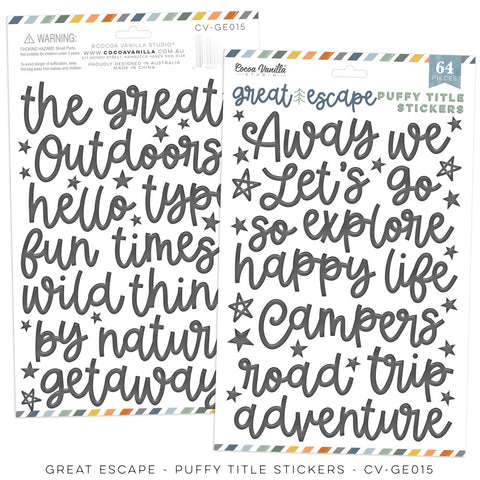 WARNING:
CHOKING HAZARD: Small Parts.
Not suitable for children under 3 years.
To avoid danger of suffocation, keep
this bag away from babies and children.
©COCOA VANILLA STUDIO®
WWW.COCOAVANILLA.COM.AU
PROUDLY DESIGNED IN AUSTRALIA
MADE IN CHINA
CV-GE015
the great
Outdoors
hello type
fun times
wild thin
by natur
getaway
Cocoa Vanilla
STUDIO
64
PIECES
great escape
PUFFY TITLE
STICKERS
Away we
Let's go
so explore
happy life
Campers
road trip
adventure
GREAT ESCAPE - PUFFY TITLE STICKERS - CV-GE015